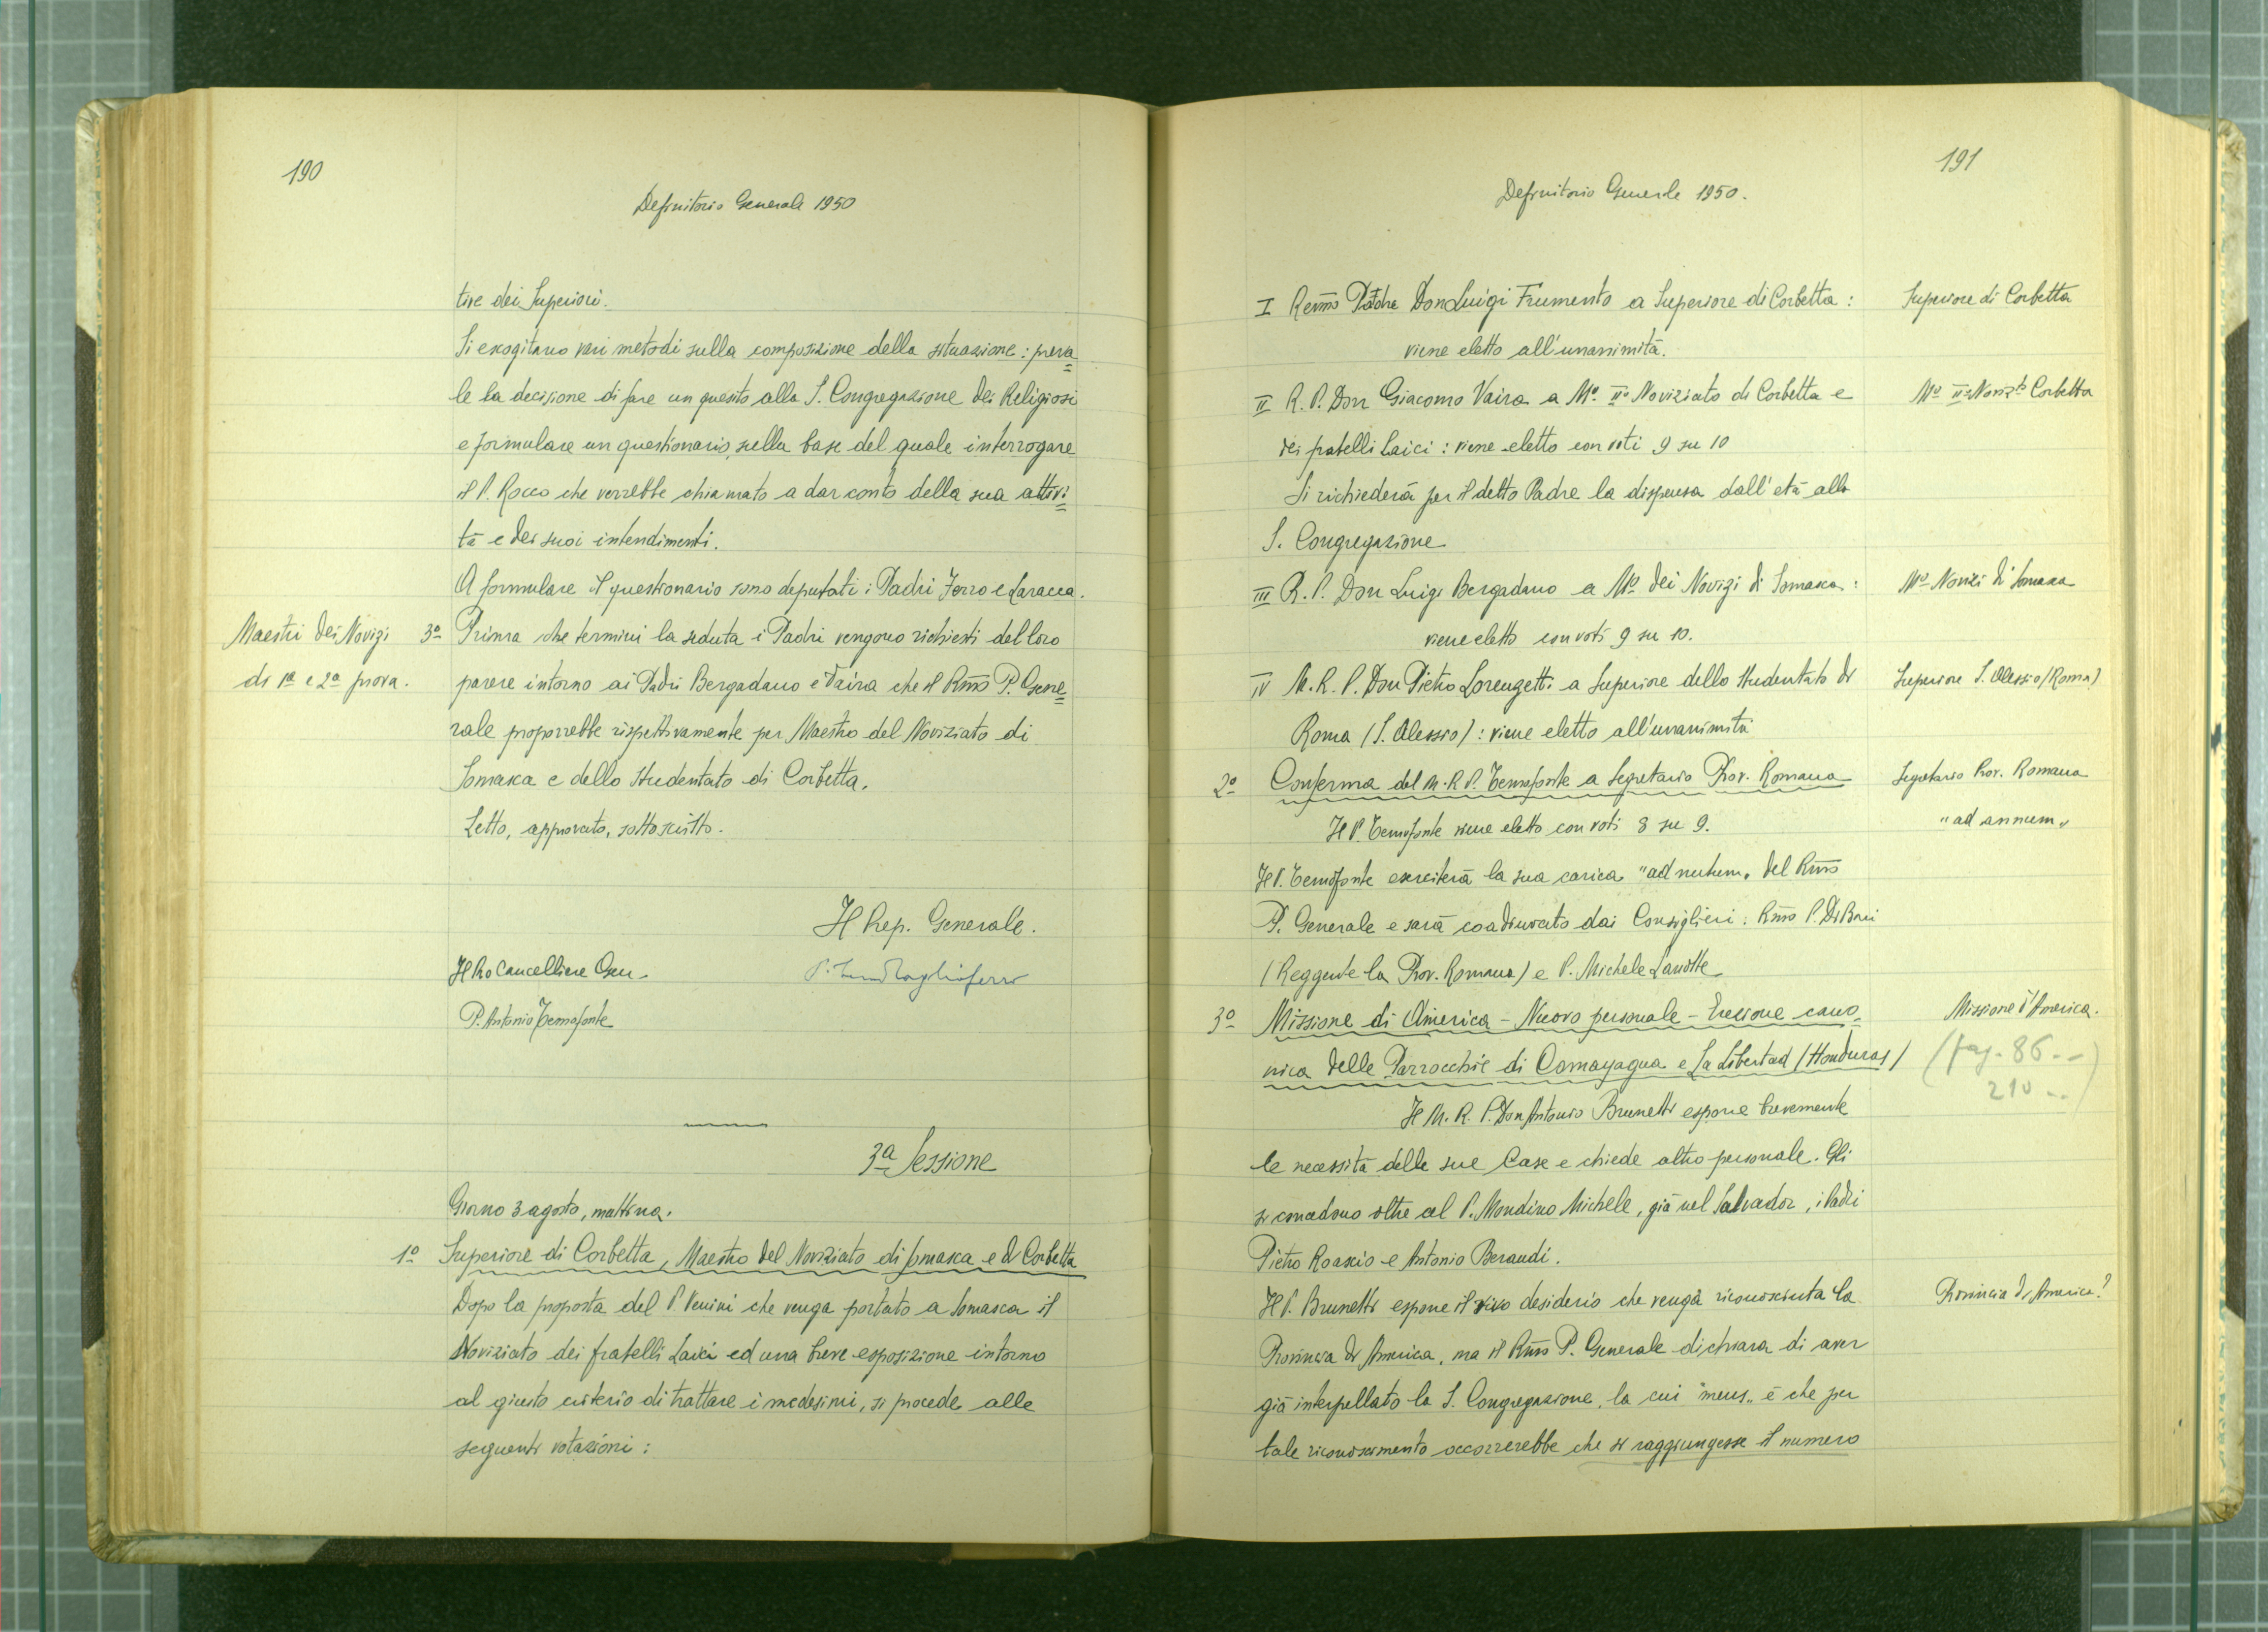 190
Definitorio Generale 1950
tire dei Superiori.
Si escogitano vari metodi sulla composizione della situazione: preva=
le la decisione di fare un quesito alla S. Congregazione dei Religiosi
e formulare un questionario, sulla base del quale interrogare
il P. Rocco che verrebbe chiamato a dar conto della sua attivi=
tà e dei suoi intendimenti.
A formulare il questionario sono deputati i Padri Ferro e Laracca.
Maestri dei Novizi
di 1a e 2a prova.
3o Prima che termini la seduta i Padri vengono richiesti del loro
parere intorno ai Padri Bergadano e Vaira che il Rmo P. Gene=
rale proporrebbe rispettivamente per Maestro del Noviziato di
Somasca e dello Studentato di Corbetta.
Letto, approvato, sottoscritto.
Il Prep. Generale.
Il Pro Cancelliere Gen.
P. Antonio Temofonte
3a Sessione
Giorno 3 agosto, mattina.
1o Superiore di Corbetta, Maestro del Noviziato di Somasca e di Corbetta
Dopo la proposta del P. Venini che venga portato a Somasca il
Noviziato dei fratelli Laici ed una breve esposizione intorno
al giusto criterio di trattare i medesimi, si procede alle
seguenti votazioni:
191
Definitorio Generale 1950.
I Revmo Padre Don Luigi Frumento a Superiore di Corbetta:
viene eletto all'unanimità.
Superiore di Corbetta
II R. P. Don Giacomo Vaira a Mo IIo Noviziato di Corbetta e
dei fratelli Laici: viene eletto con voti 9 su 10
Mo IIo Novizto Corbetta
Si richiederà per il detto Padre la dispensa dall'età alla
S. Congregazione
III R. P. Don Luigi Bergadano a Mo dei Novizi di Somasca:
viene eletto con voti 9 su 10.
Mo Novizi di Somasca
IV M. R. P. Don Pietro Lorenzetti a Superiore dello Studentato di
Roma (S. Alessio): viene eletto all'unanimità
Superiore S. Alessio (Roma)
2o Conferma del M. R. P. Temofonte a Segretario Prov. Romana
Segretario Prov. Romana
Il P. Temofonte viene eletto con voti 8 su 9.
"ad annum"
Il P. Temofonte eserciterà la sua carica "ad nutum" del Rmo
P. Generale e sarà coadiuvato dai Consiglieri: Rmo P. Di Bari
(Reggente la Prov. Romana) e P. Michele Lanotte
3o Missione di America - Nuovo personale - Erezione cano=
nica delle Parrocchie di Comayagua e La Libertad (Honduras)
Missione d'America.
(pag. 86 --
210 ..)
Il M. R. P. Don Antonio Brunetti espone brevemente
le necessità delle sue Case e chiede altro personale. Gli
si concedono oltre al P. Mondino Michele, già nel Salvador, i Padri
Pietro Roascio e Antonio Beraudi.
Il P. Brunetti espone il vivo desiderio che venga riconosciuta la
Provincia di America?
Provincia di America, ma il Rmo P. Generale dichiara di aver
già interpellato la S. Congregazione, la cui "mens" è che per
tale riconoscimento occorrerebbe che si raggiungesse il numero